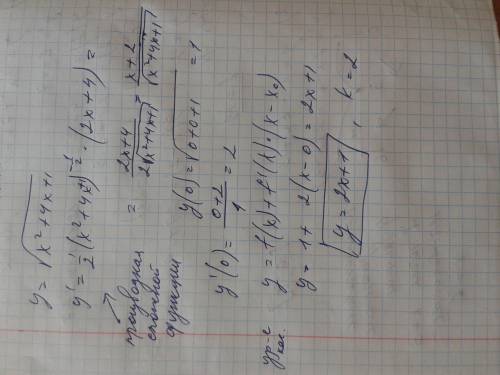 y = √(x²+4x+1)
y' = 1/2 (x²+4x+1)^(-1/2) · (2x+4) =
производная сложной функции
= (2x+4)/(2√(x²+4x+1)) = (x+2)/√(x²+4x+1)
y(0) = √(0+0+1) = 1
y'(0) = (0+2)/1 = 2
ур-е кас.
y = f(x) + f'(x)·(x-x₀)
y = 1 + 2(x-0) = 2x+1
y = 2x+1, k=2